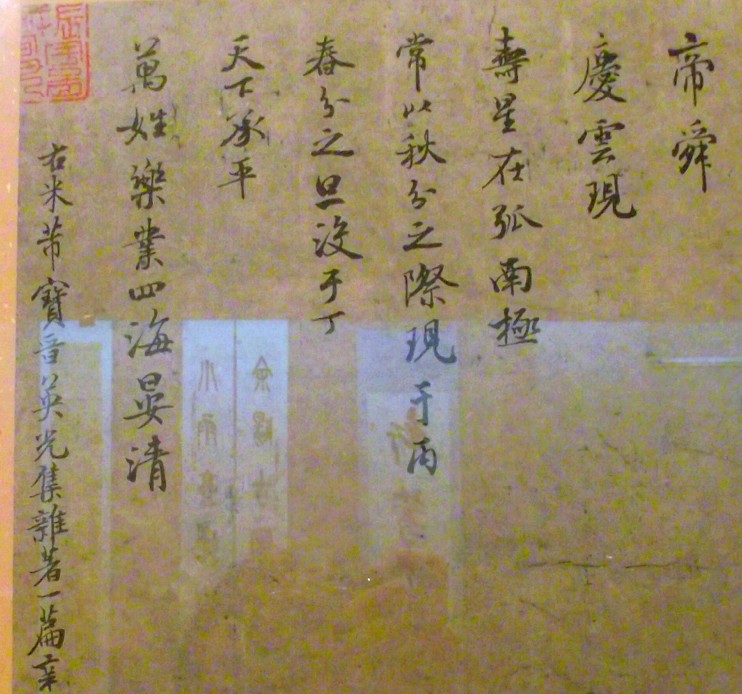 帝舜
慶雲現
壽星在弧南極
常以秋分之際現于丙
春分之旦沒于丁
天下承平
萬姓樂業四海晏清
右米芾寶晉英光集雜著一篇